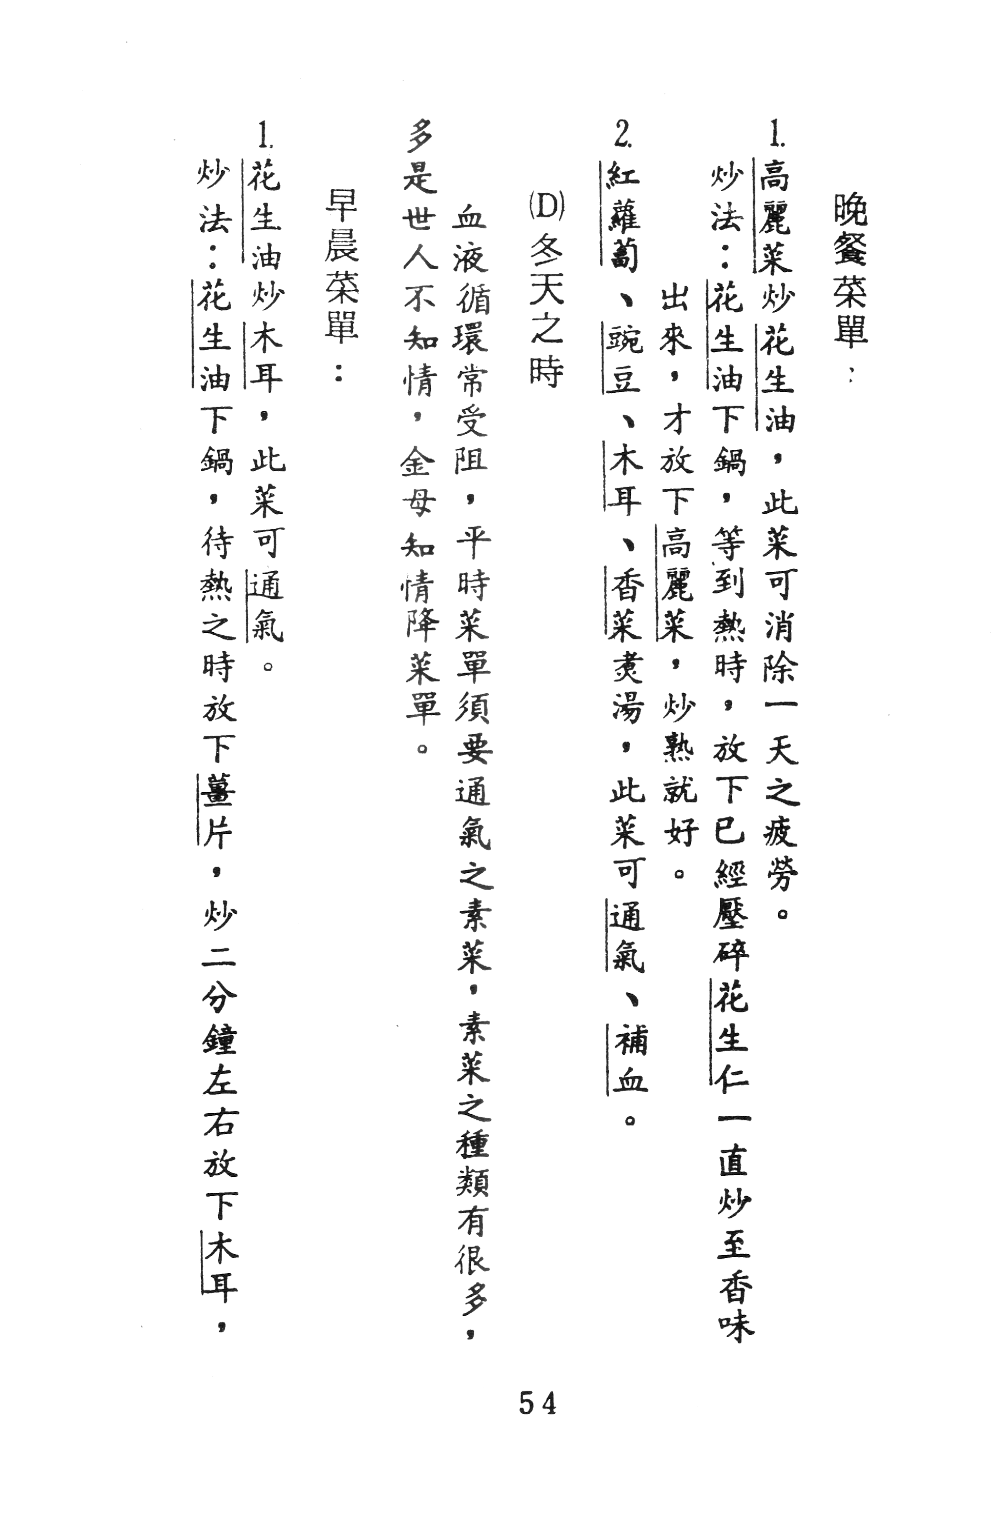 晚餐菜單：
1.高麗菜炒花生油，此菜可消除一天之疲勞。
炒法：花生油下鍋，等到熱時，放下已經壓碎花生仁一直炒至香味
出來，才放下高麗菜，炒熟就好。
2.紅蘿蔔、豌豆、木耳、香菜煑湯，此菜可通氣、補血。
(D)冬天之時
血液循環常受阻，平時菜單須要通氣之素菜，素菜之種類有很多，
多是世人不知情，金母知情降菜單。
早晨菜單：
1.花生油炒木耳，此菜可通氣。
炒法：花生油下鍋，待熱之時放下薑片，炒二分鐘左右放下木耳，
54